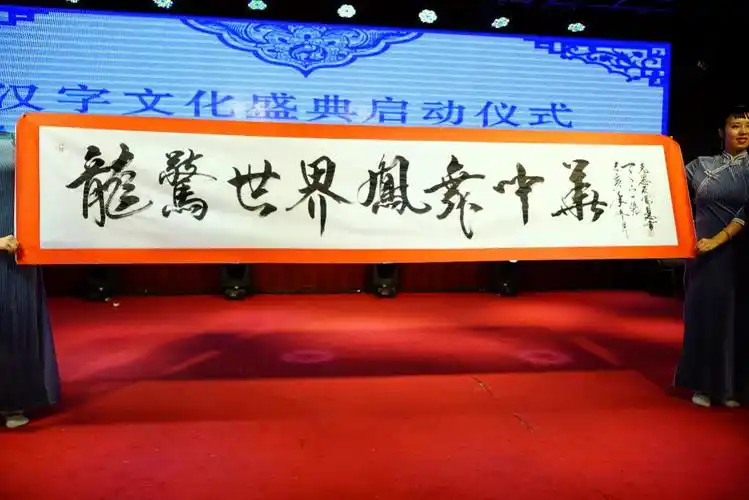 汉字文化盛典启动仪式
龍驚世界鳳舞中華